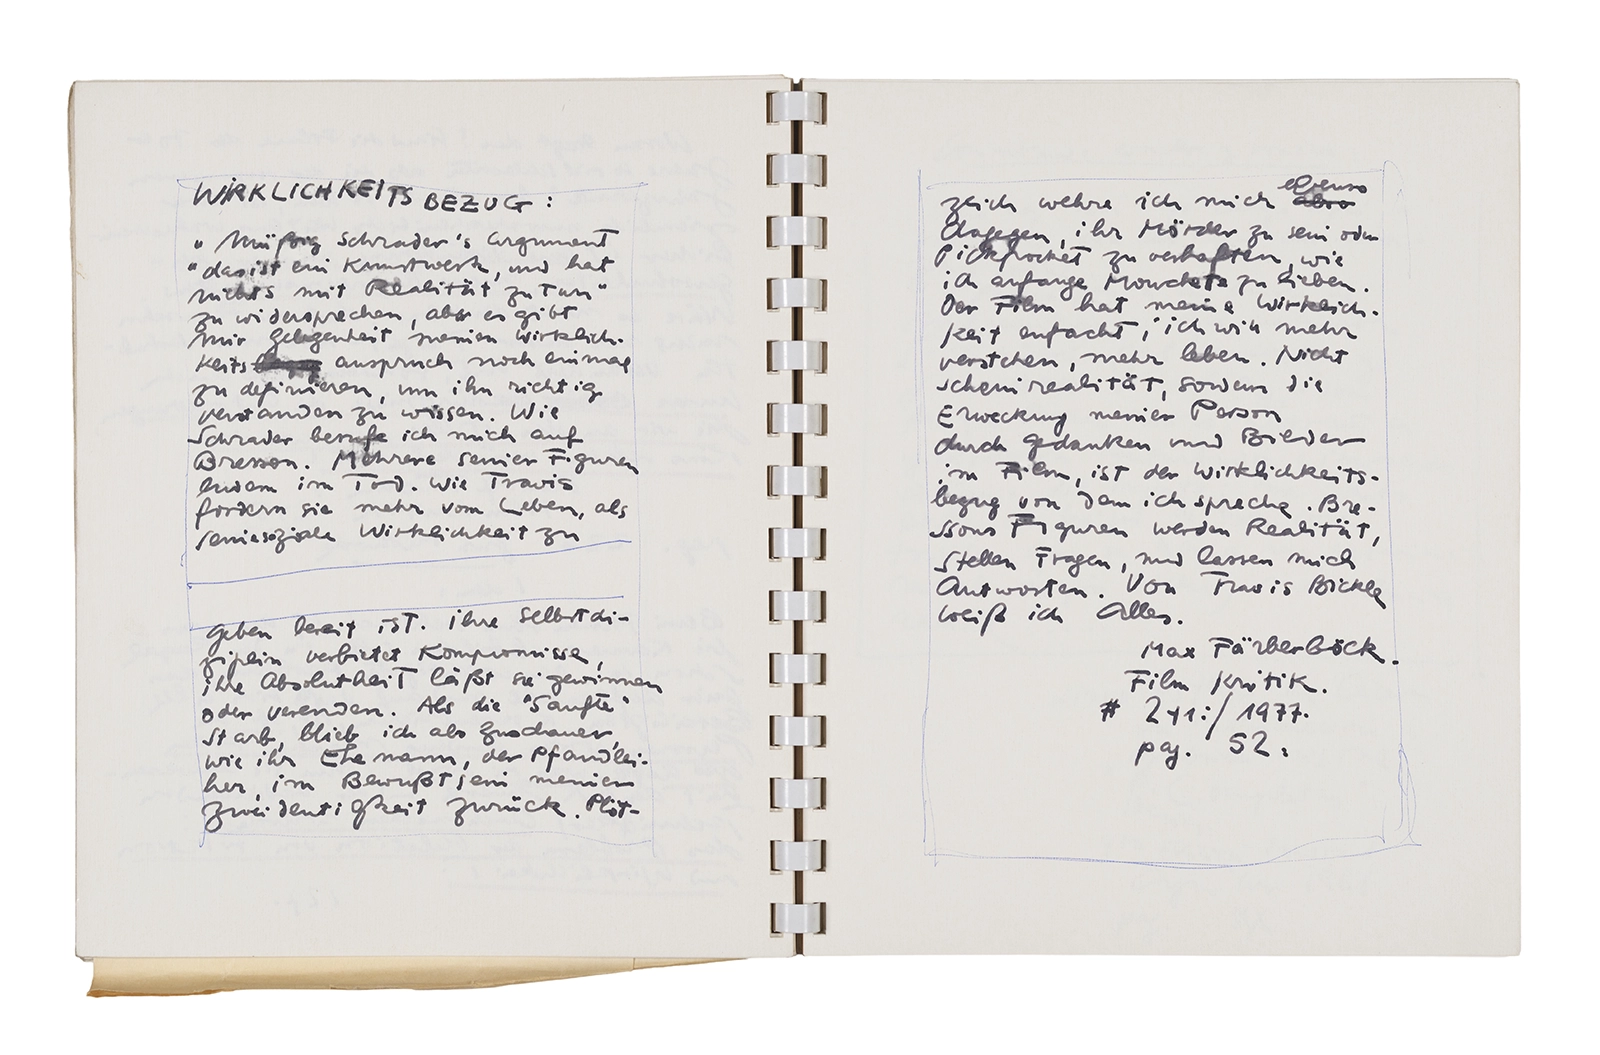 WIRKLICHKEITSBEZUG:
"Müßig Schrader's argument
"das ist ein Kunstwerk, und hat
nichts mit Realität zu tun"
zu widersprechen, aber es gibt
mir gelegenheit meinen Wirklich-
keits anspruch noch einmal
zu definieren, um ihn richtig
verstanden zu wissen. Wie
Schrader berufe ich mich auf
Bresson. Mehrere seiner Figuren
enden im Tod. Wie Travis
fordern sie mehr vom Leben, als
seine soziale Wirklichkeit zu
geben bereit ist. ihre Selbstdi-
ziplin verbietet Kompromisse,
ihre Absolutheit läßt sie gewinnen
oder verenden. Als die "Sanfte"
starb, blieb ich als Zuschauer,
wie ihr Ehemann, der Pfandlei-
her, im Bewußtsein meiner
Zweideutigkeit zurück. Plöt-
zlich wehre ich mich ebenso
dagegen, ihr Mörder zu sein oder
Pickpocket zu verhaften, wie
ich anfange Mouchete zu lieben.
Der Film hat meine Wirklich-
keit entfacht, ich will mehr
verstehen, mehr leben. Nicht
scheinrealität, sondern die
Erweckung meiner Person
durch gedanken und Bilder
im Film, ist der Wirklichkeits-
bezug von dem ich spreche. Bre-
ssons Figuren werden Realität,
stellen Fragen, und lassen mich
Antworten. Von Travis Bickle
weiß ich Alles.
Max Färberböck.
Film Kritik.
# 241:/1977.
pag. 52.